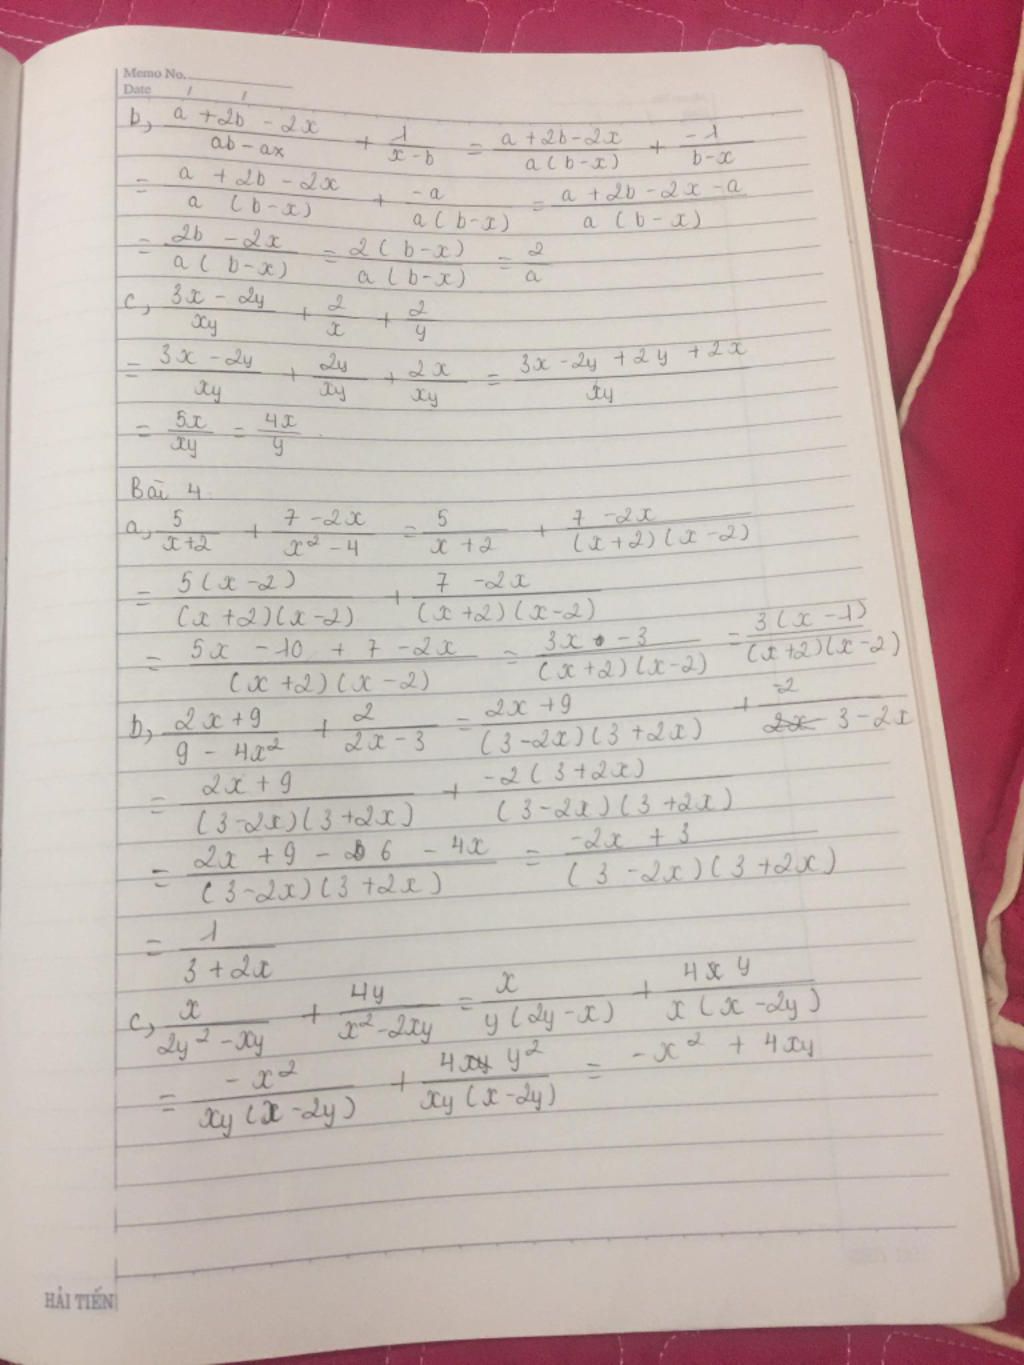 Memo No.
Date / /
b, (a + 2b - 2x)/(ab - ax) + 1/(x - b) = (a + 2b - 2x)/(a(b - x)) + (-1)/(b - x)
= (a + 2b - 2x)/(a(b - x)) + (-a)/(a(b - x)) = (a + 2b - 2x - a)/(a(b - x))
= (2b - 2x)/(a(b - x)) = (2(b - x))/(a(b - x)) = 2/a
c, (3x - 2y)/(xy) + 2/x + 2/y
= (3x - 2y)/(xy) + 2y/(xy) + 2x/(xy) = (3x - 2y + 2y + 2x)/(xy)
= 5x/(xy) = 4x/y
Bài 4
a, 5/(x+2) + (7 - 2x)/(x² - 4) = 5/(x + 2) + (7 - 2x)/((x+2)(x-2))
= (5(x - 2))/((x+2)(x-2)) + (7 - 2x)/((x+2)(x-2))
= (5x - 10 + 7 - 2x)/((x+2)(x-2)) = (3x - 3)/((x+2)(x-2)) = (3(x - 1))/((x+2)(x-2))
b, (2x+9)/(9 - 4x²) + 2/(2x - 3) = (2x + 9)/((3-2x)(3+2x)) + (-2)/(3-2x)
= (2x + 9)/((3-2x)(3+2x)) + (-2(3+2x))/((3-2x)(3+2x))
= (2x + 9 - 6 - 4x)/((3-2x)(3+2x)) = (-2x + 3)/((3-2x)(3+2x))
= 1/(3 + 2x)
c, x/(2y² - xy) + 4y/(x² - 2xy) = x/(y(2y - x)) + 4y/(x(x - 2y))
= (-x²)/(xy(x - 2y)) + 4y²/(xy(x - 2y)) = -x² + 4xy
HẢI TIẾN